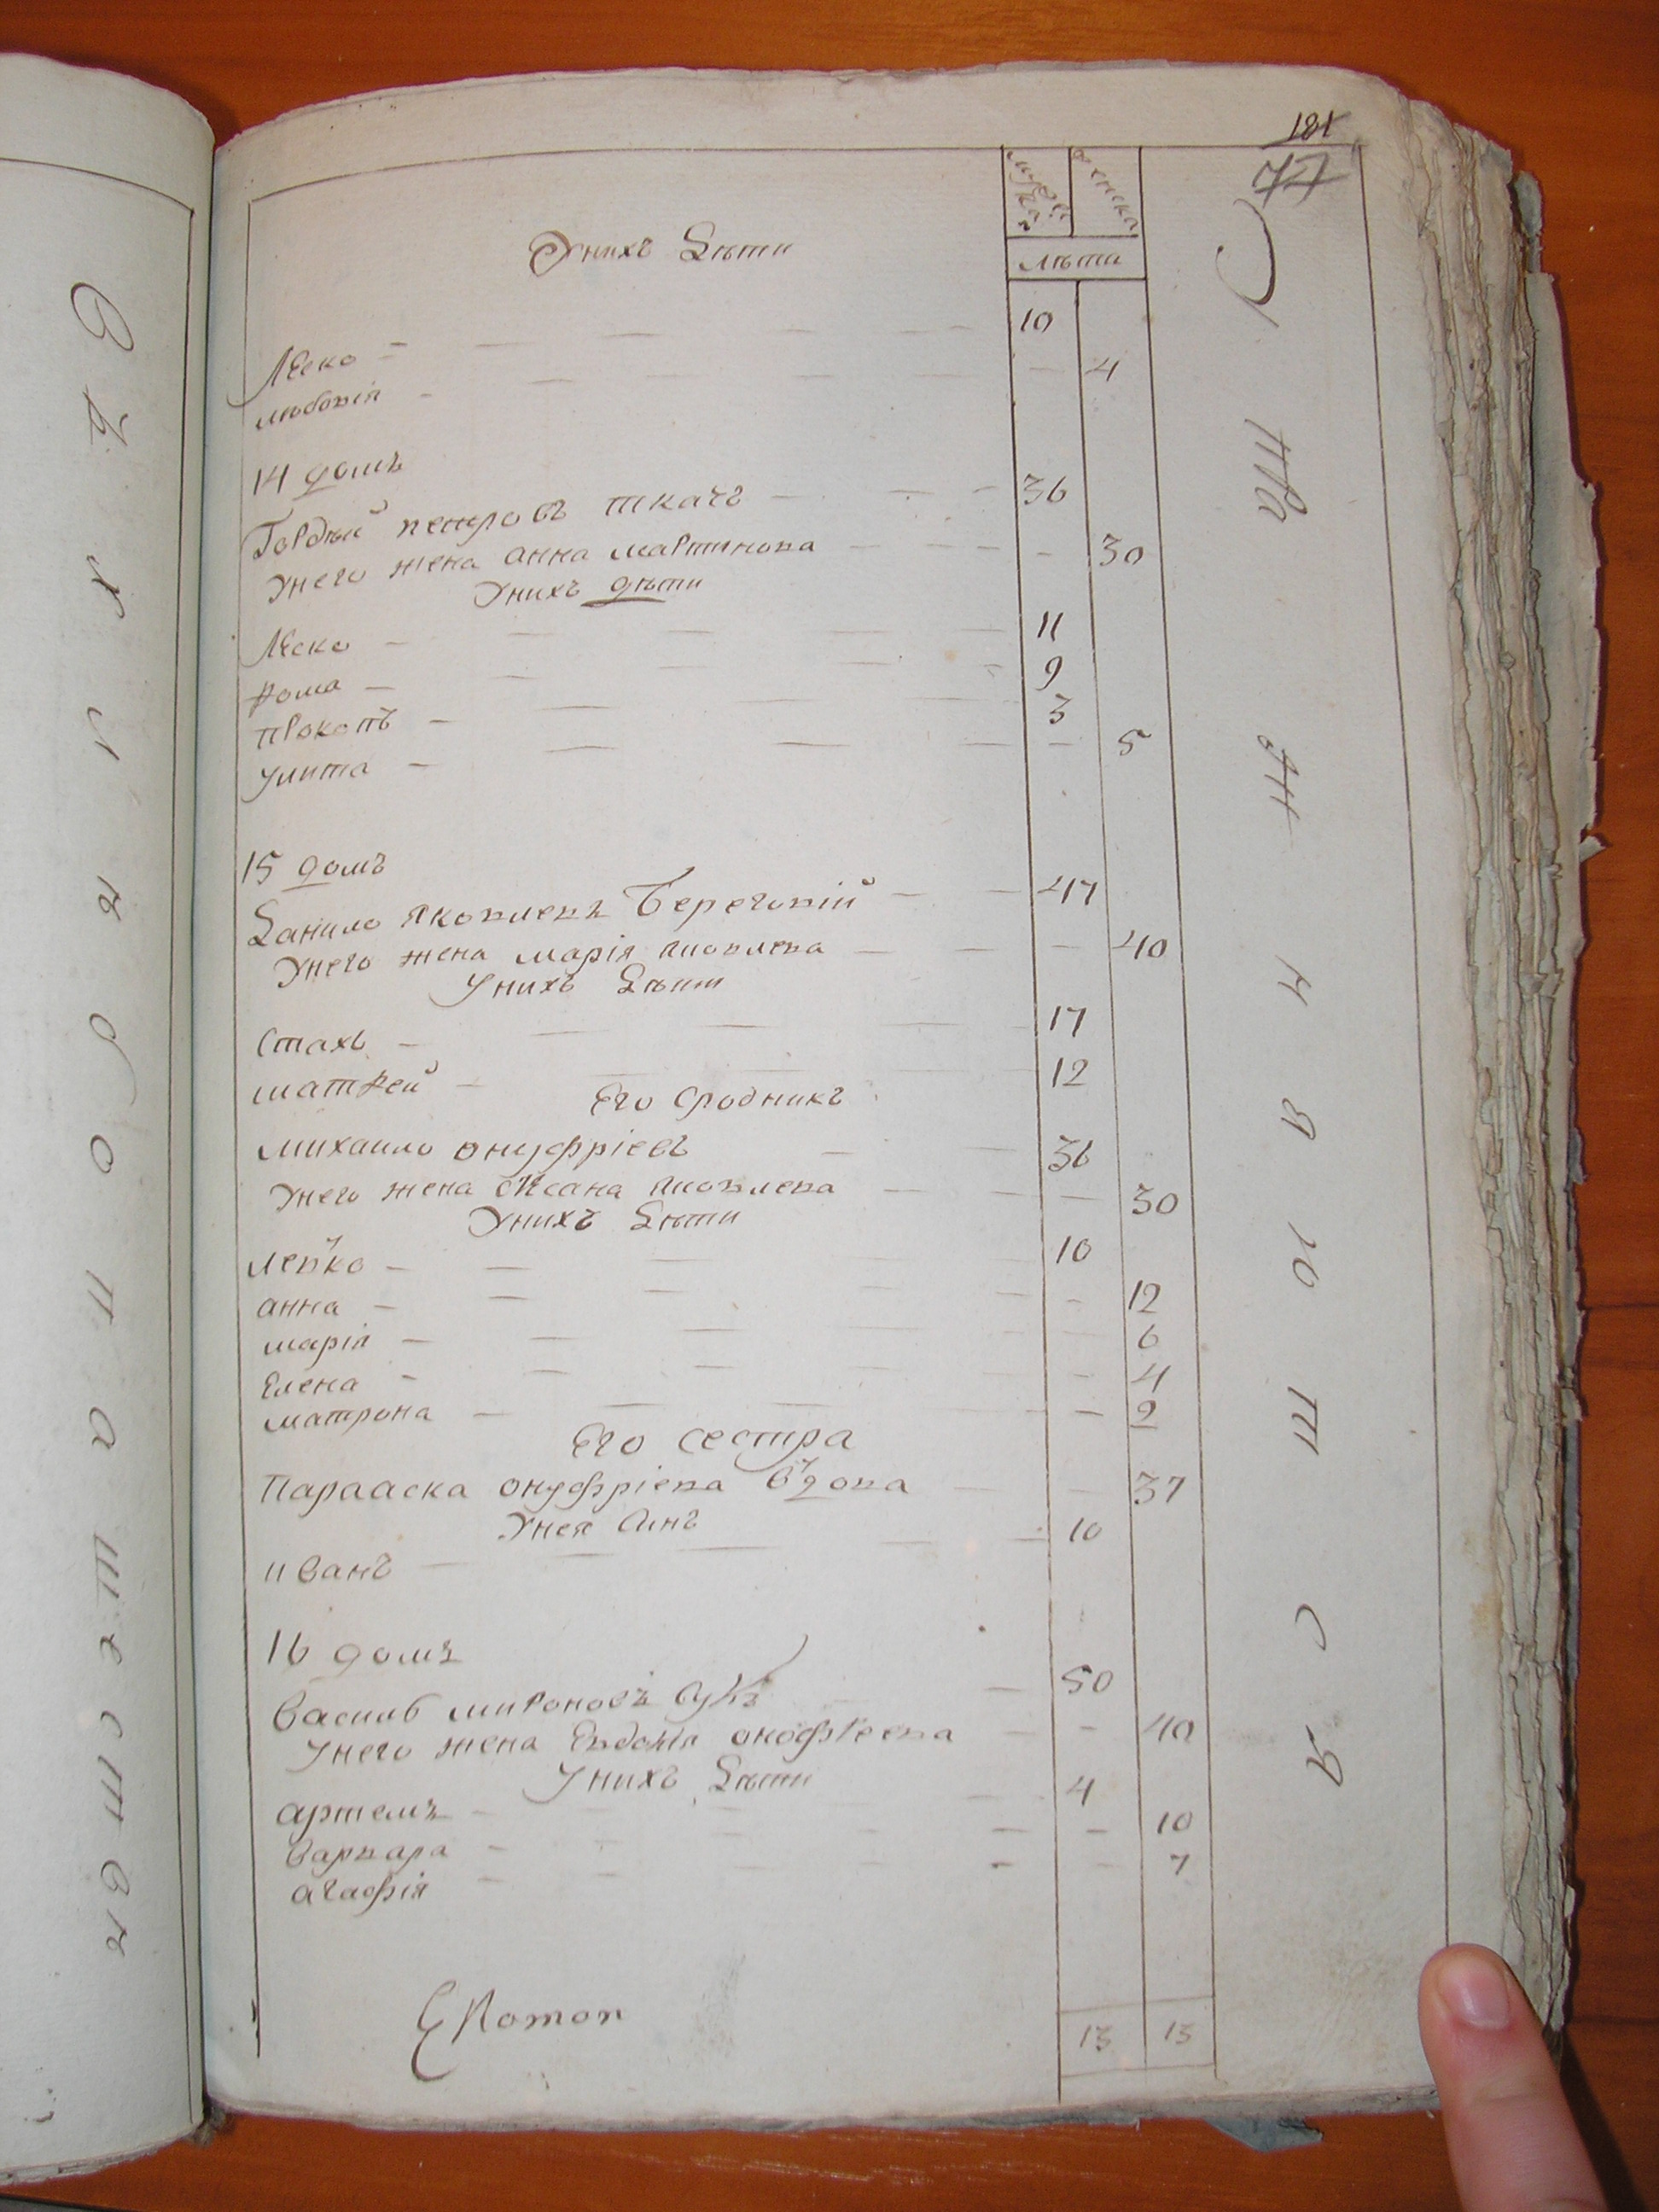 181
77
мужеска
женска
лѣта
Унихъ Дѣти
Леско 10
14 домъ
Гордѣй петровъ ткачъ 36
Унего жена анна мартинова 30
Унихъ дѣти
Леско 11
Ѳома 9
прокопъ 3
улита 5
15 домъ
Данило Яковлевъ Береговій 47
Унего жена марія яковлева 40
Унихъ Дѣти
Стахъ 17
матѳей 12
Его Сродникъ
михаило онуфріевъ 36
Унего жена Оксана яковлева 30
Унихъ Дѣти
левко 10
анна 12
марія 6
Елена 4
матрона 2
Его сестра
Парааска онуфріева вдова 37
Унея Синъ
иванъ 10
16 домъ
Василь мироновъ 50
Унего жена Евдокія онофреева 40
Унихъ Дѣти
артемъ 4
варвара 10
агафія 7
13 13